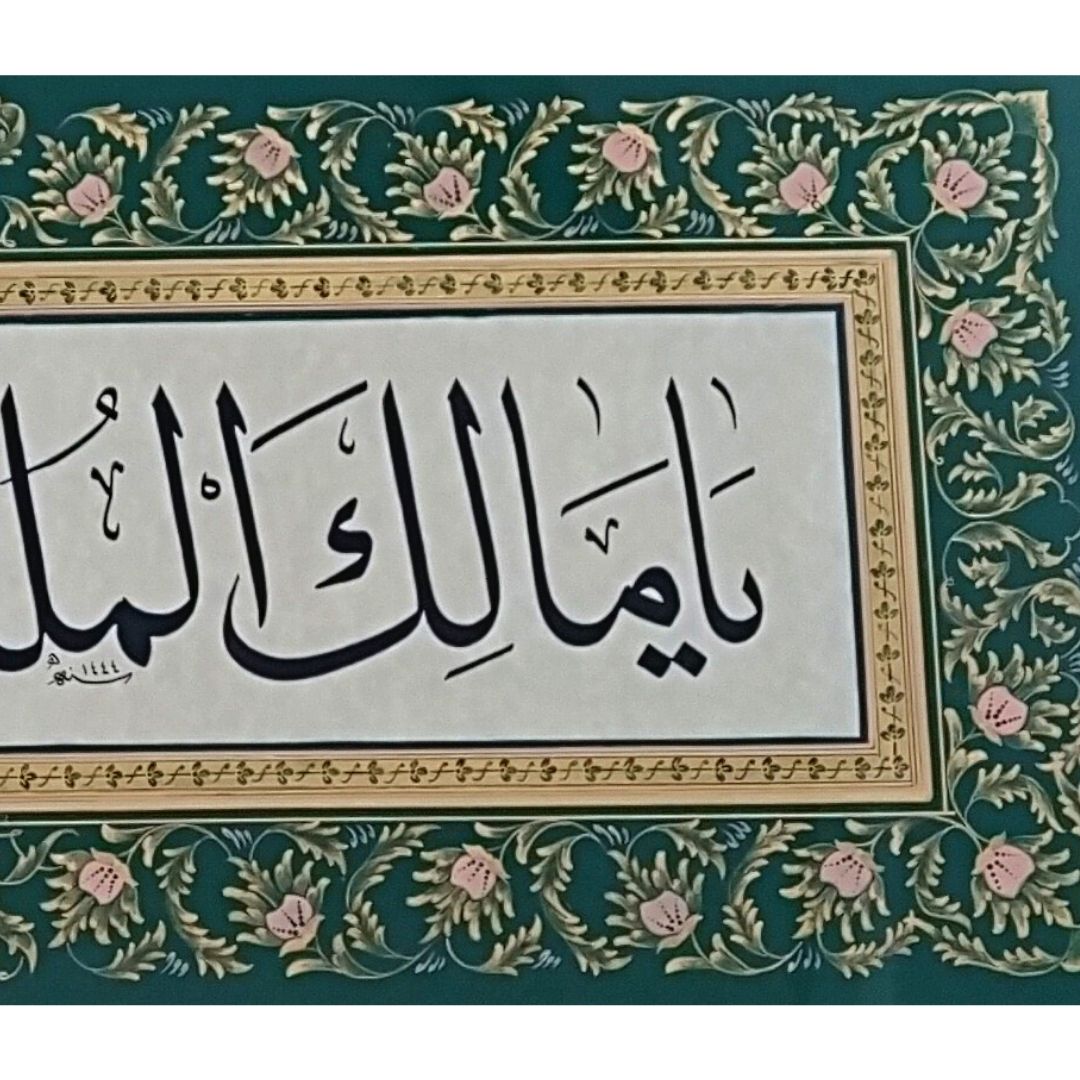 يَا مَالِكَ الْمُل
سنه ١٤٤٤ هـ